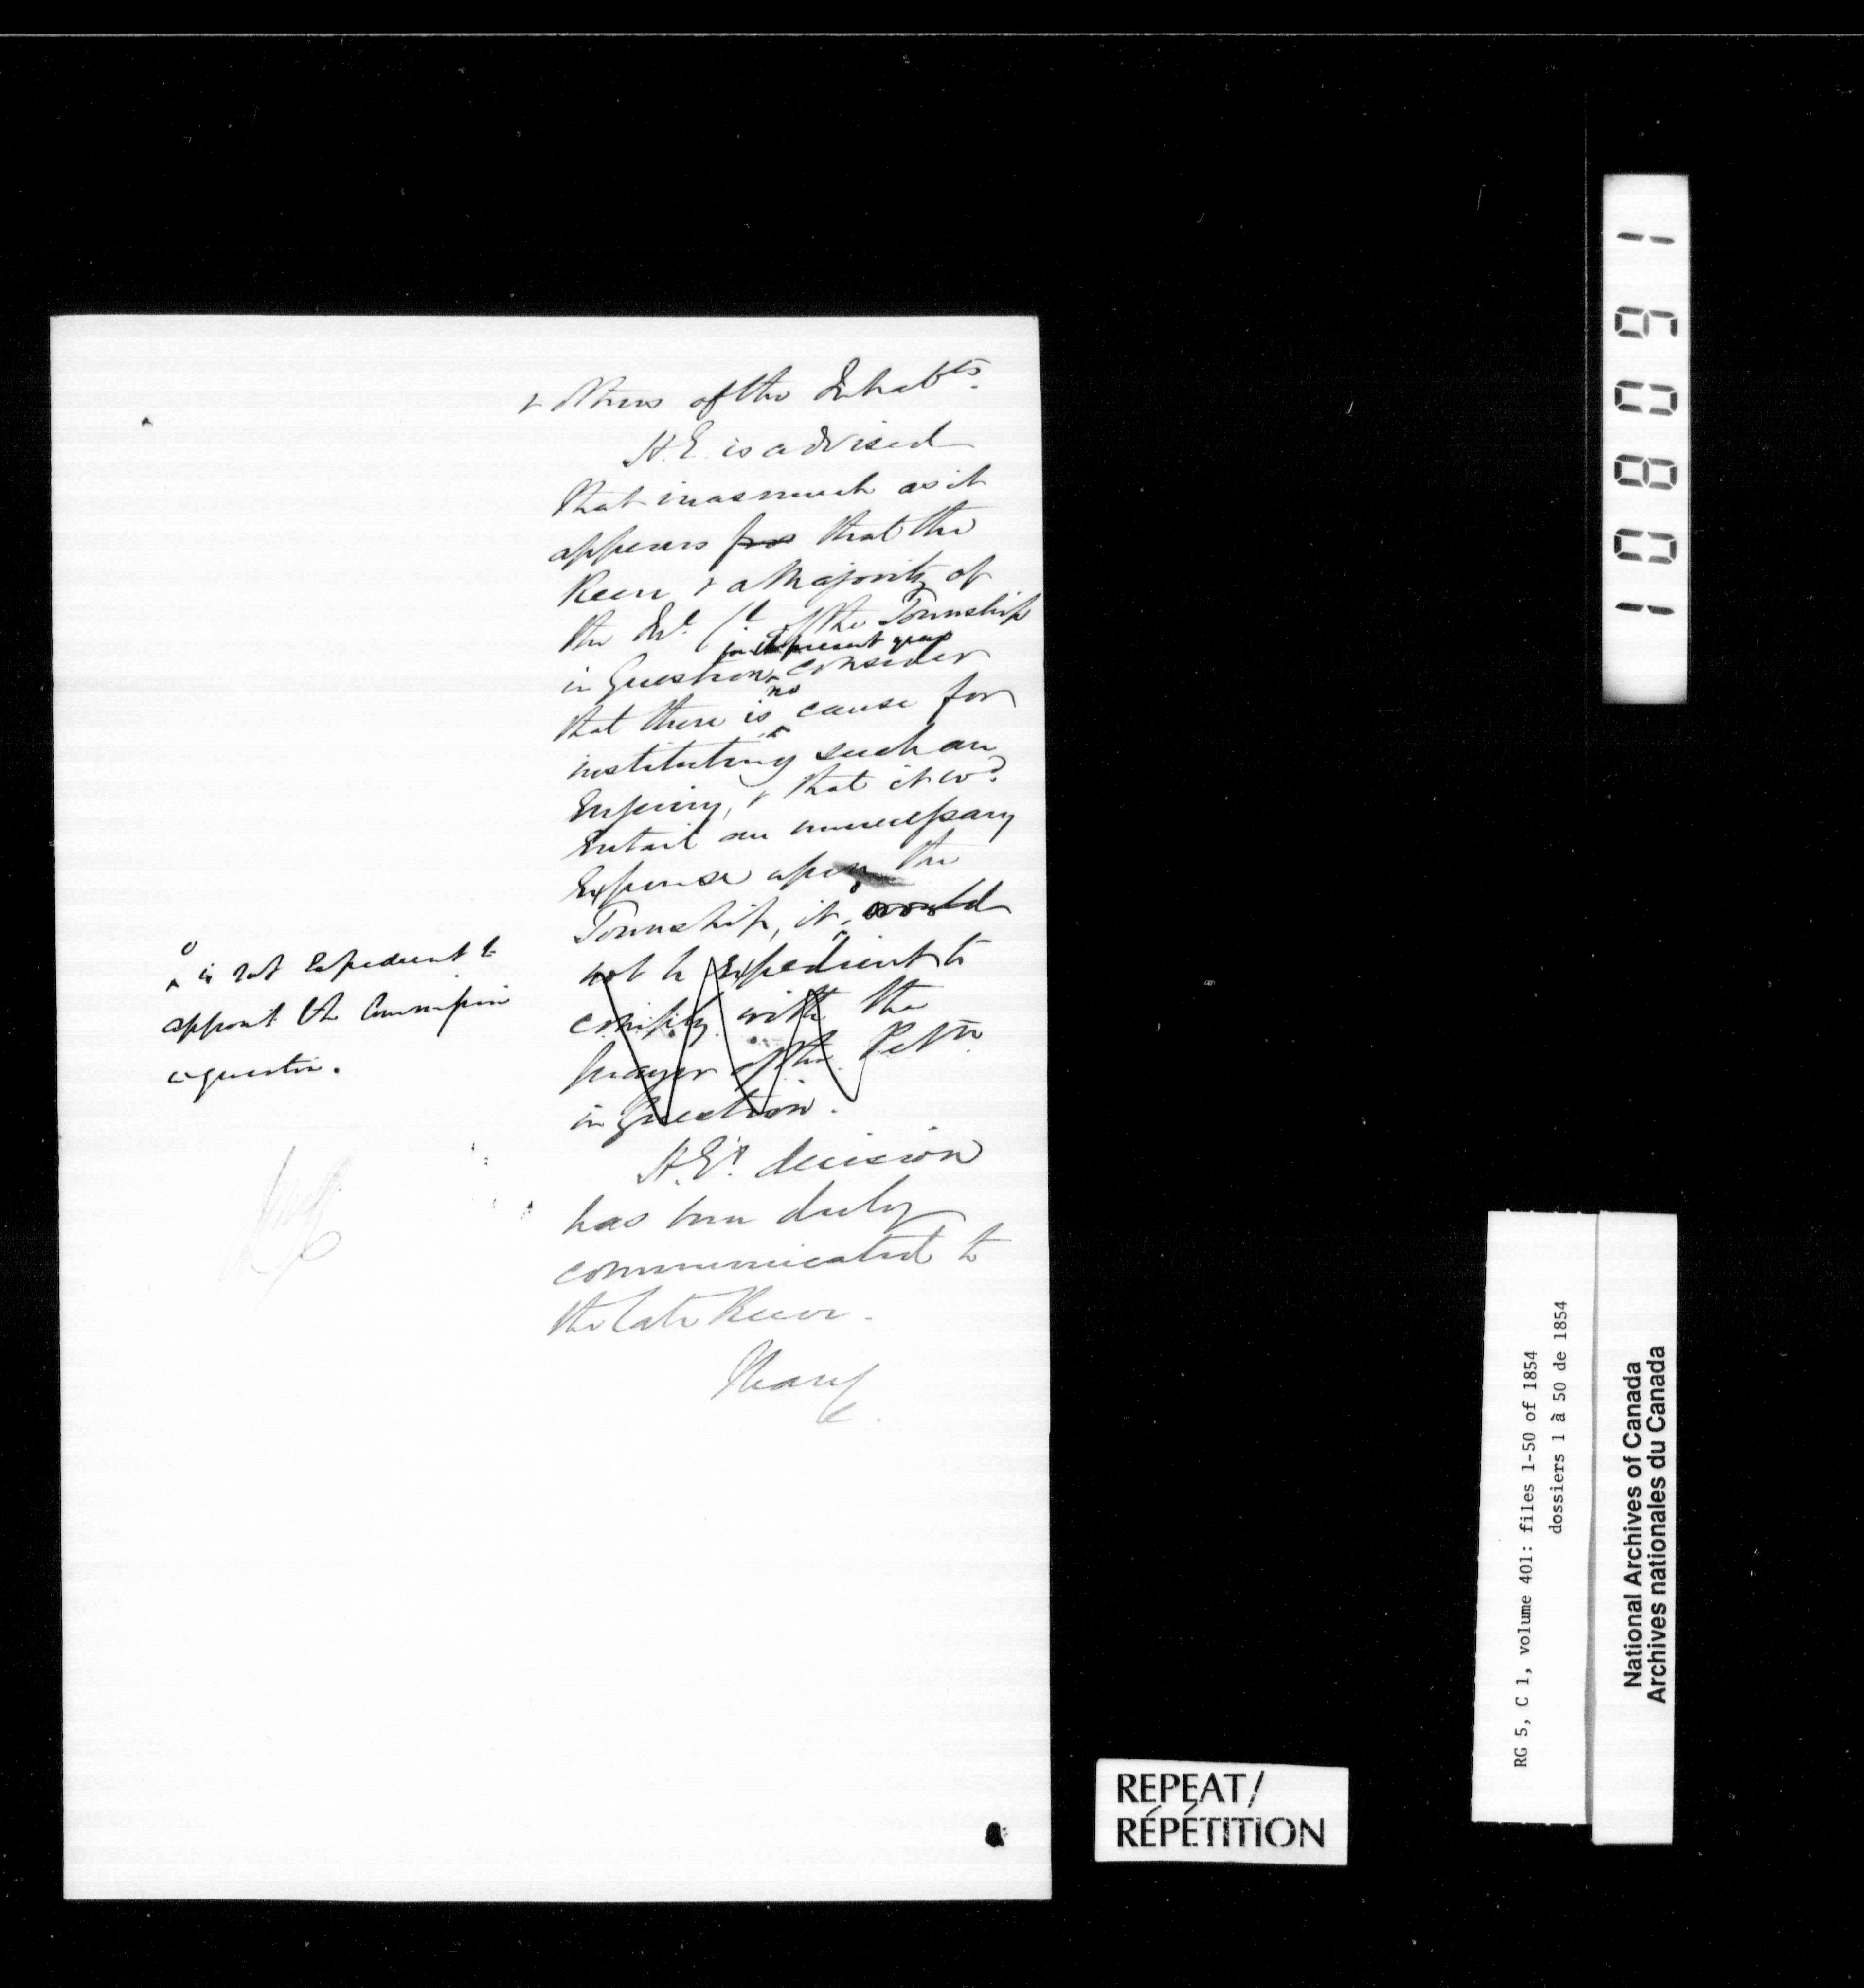 & others of the Inhabts.
H.E. is advised
that inasmuch as it
appears from that the
Reeve & a Majority of
the Ml. Cl. of the Township
for the present year
in Question consider
no
that there is cause for
instituting such an
Enquiry, & that it wd.
Entail an unnecessary
Expense upon the
Township, it would
not be expedient to
comply with the
prayer of the Petn.
in Question.
o is not expedient to
appoint the Commission
in question.
H.E's. decision
has been duly
communicated to
the late Reeve.
I have
&c.
108091
RG 5, C 1, volume 401: files 1-50 of 1854
dossiers 1 à 50 de 1854
National Archives of Canada
Archives nationales du Canada
REPEAT/
RÉPÉTITION